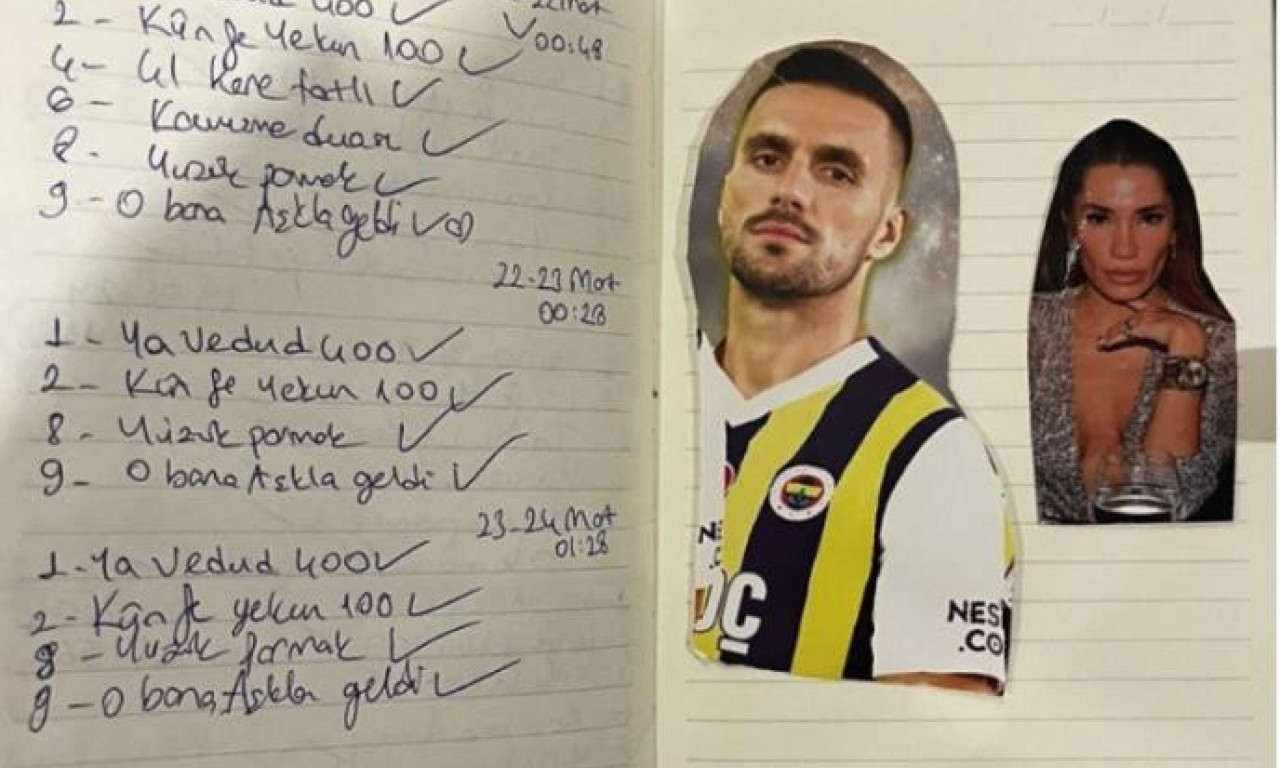 400 ✓
2 - Kûn fe Yekun 100 ✓
00:48
4 - 41 Kere tatlı ✓
6 - Kavuşma duası ✓
8 - Yüzük parmak ✓
9 - O bana Aşkla geldi ✓
22-23 Mat
00:23
1 - Ya Vedud 400 ✓
2 - Kûn fe Yekun 100 ✓
8 - Yüzük parmak ✓
9 - O bana Aşkla geldi ✓
23-24 Mat
01:28
1 - Ya Vedud 400 ✓
2 - Kûn fe yekun 100 ✓
8 - Yüzük parmak ✓
9 - O bana Aşkla geldi ✓
NES
.CO